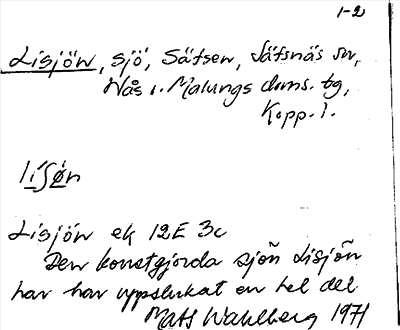 1-2
Lisjön, sjö, Sätsen, Säfsnäs sn,
Nås o. Malungs doms. tg,
Kopp. l.
lisøn
Lisjön ek 12E 3c
Den konstgjorda sjön Lisjön
har har uppslukat en hel del
Mats Wahlberg 1971